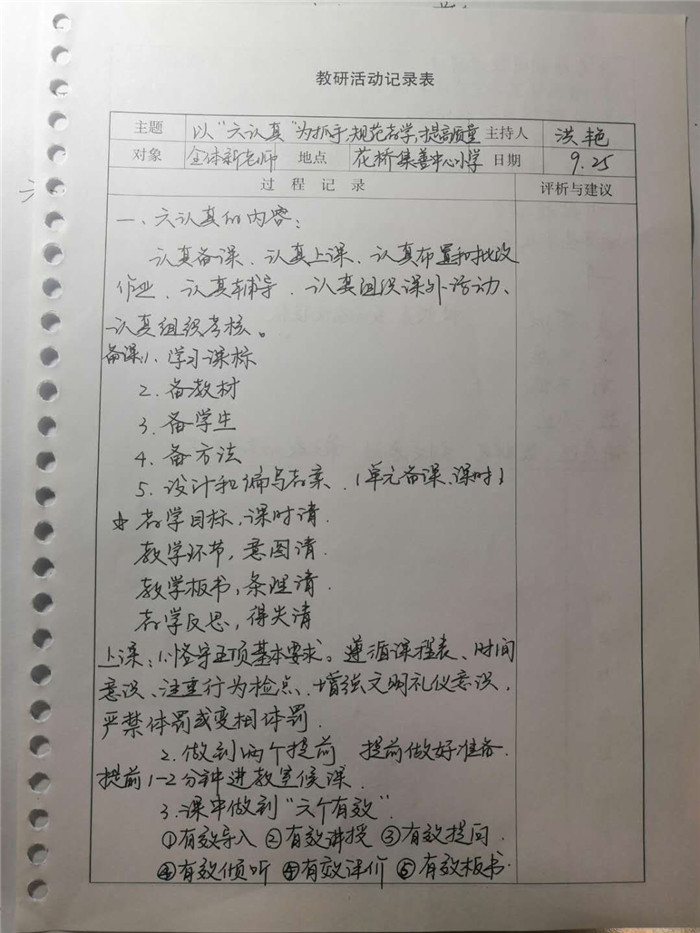 教研活动记录表
主题 以“六认真”为抓手,规范教学,提高质量 主持人 洪艳
对象 全体新老师 地点 花桥集善中心小学 日期 9.25
过程记录 评析与建议
一、六认真的内容:
认真备课、认真上课、认真布置和批改
作业、认真辅导、认真组织课外活动、
认真组织考核。
备课:1、学习课标
2.备教材
3.备学生
4.备方法
5.设计和编写教案.(单元备课、课时)
☆教学目标,课时清.
教学环节,意图清.
教学板书,条理清.
教学反思,得失清
上课:1.恪守五项基本要求。遵循课程表、时间
意识、注重行为检点、增强文明礼仪意识,
严禁体罚或变相体罚.
2.做到两个提前 提前做好准备.
提前1-2分钟进教室候课.
3.课中做到“六个有效”
①有效导入 ②有效讲授 ③有效提问.
④有效倾听 ⑤有效评价 ⑥有效板书.